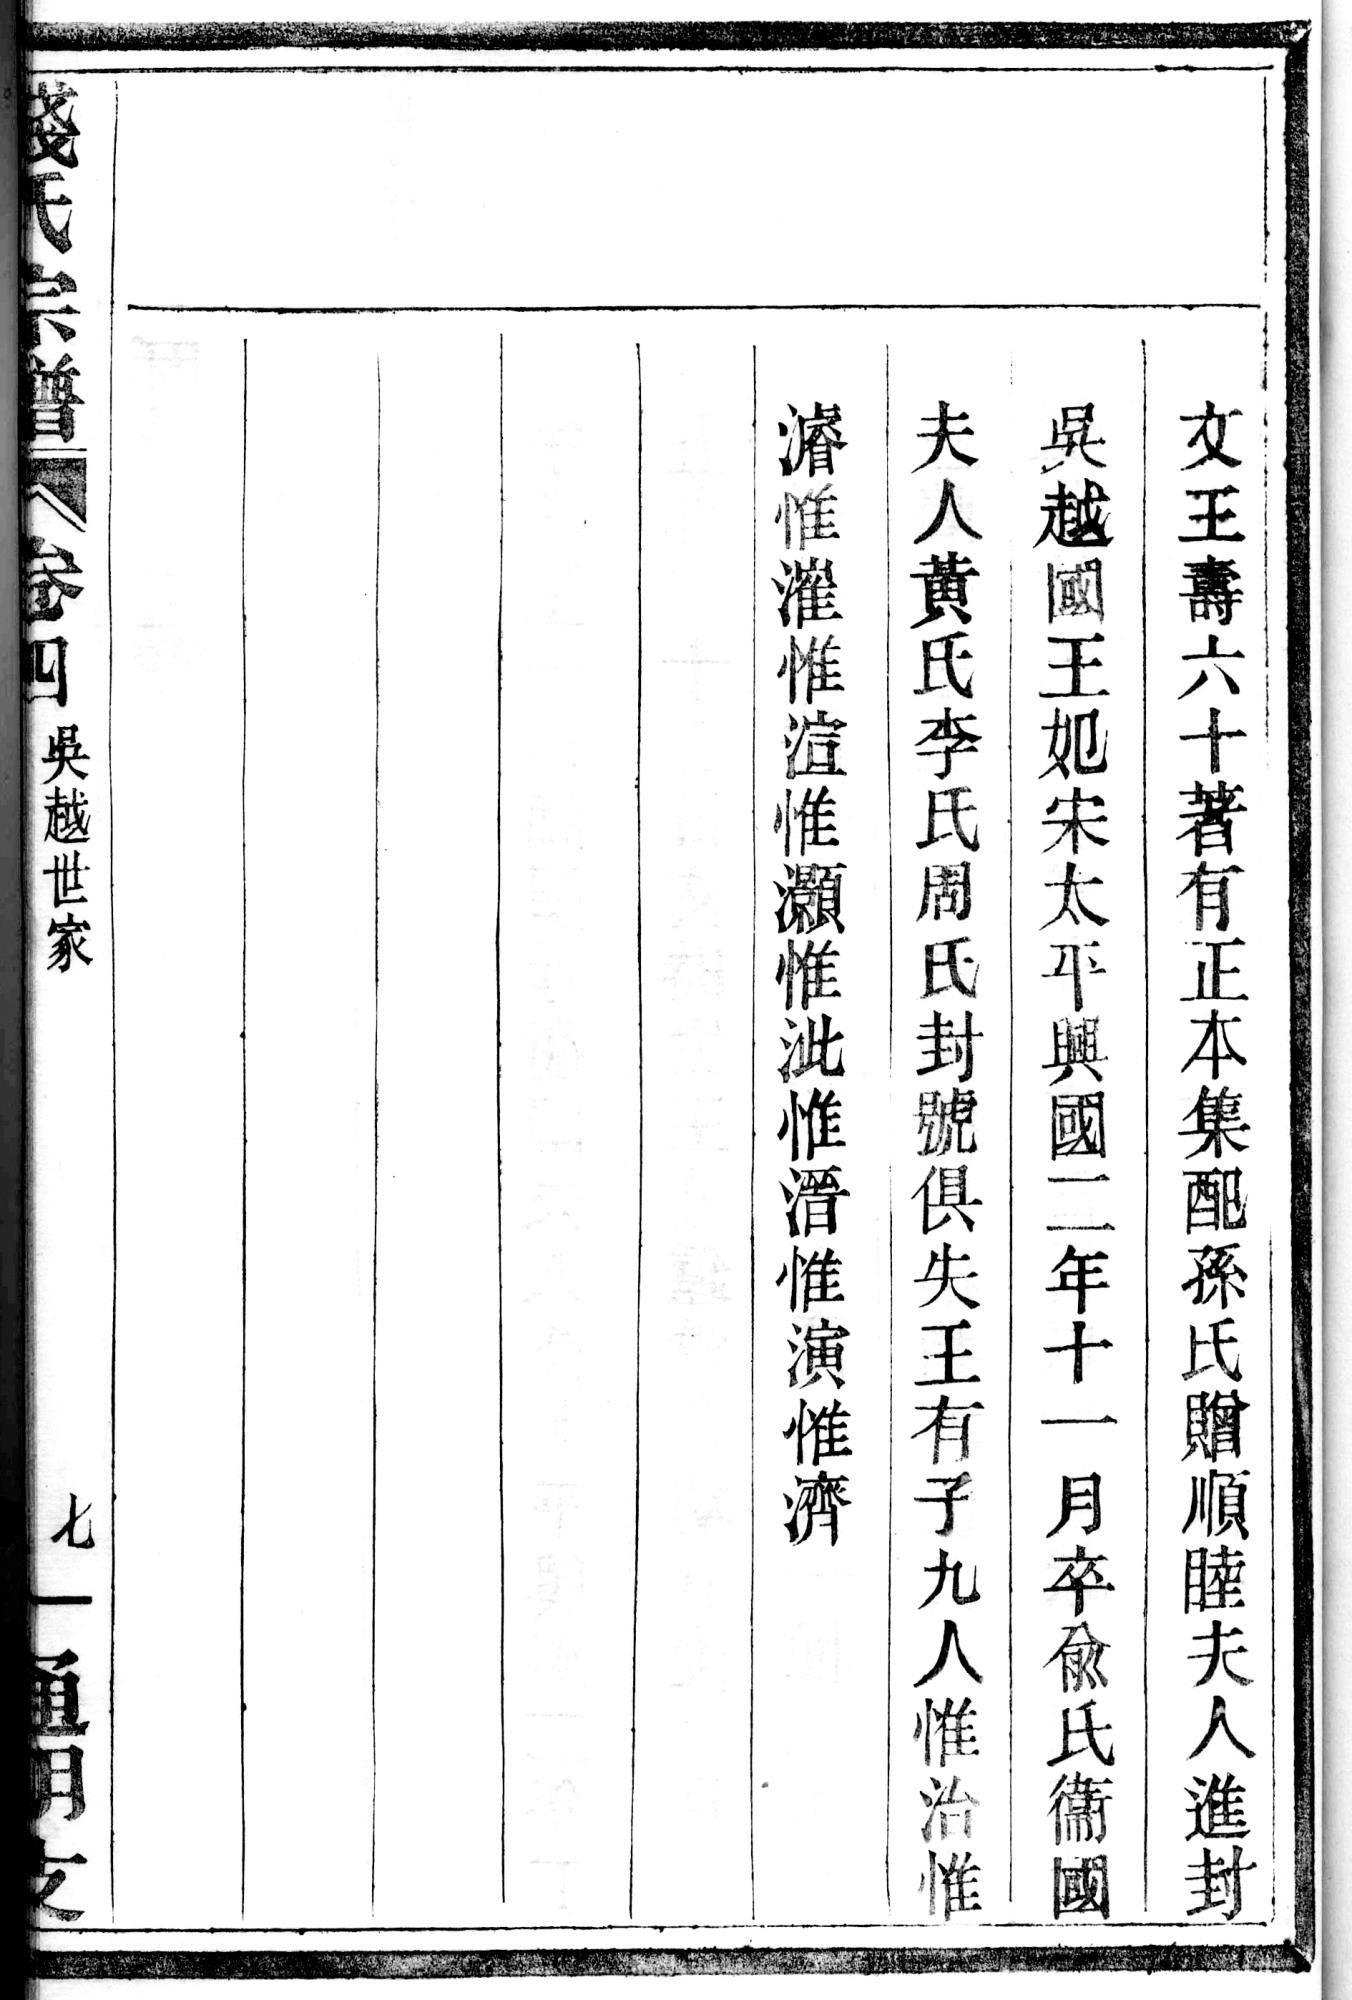 文王壽六十著有正本集配孫氏贈順睦夫人進封
吳越國王妃宋太平興國二年十一月卒俞氏衞國
夫人黃氏李氏周氏封號俱失王有子九人惟治惟
濬惟漼惟渲惟灝惟泚惟溍惟演惟濟
錢氏宗譜
卷四
吳越世家
七
通明支